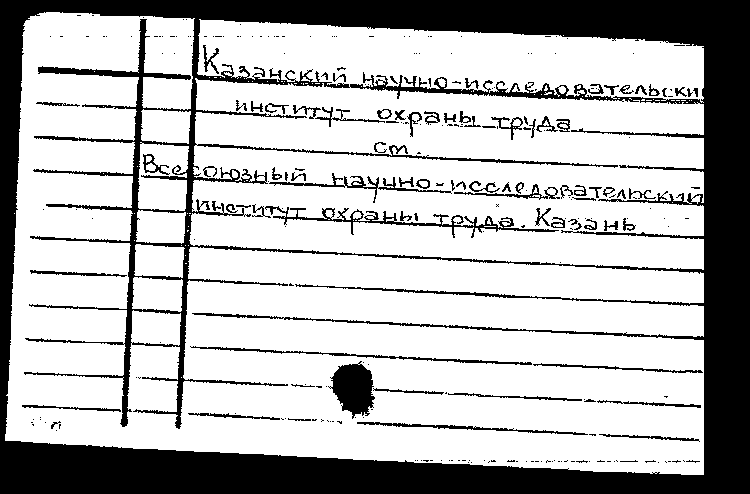 Казанский научно-исследовательский
институт охраны труда.
см.
Всесоюзный научно-исследовательский
институт охраны труда. Казань.